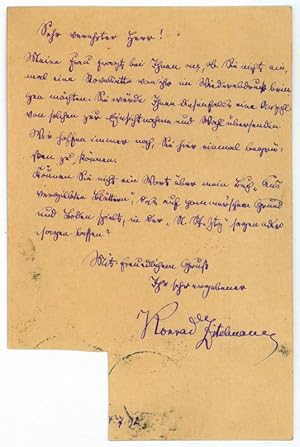 Sehr verehrter Herr!
Meine Frau fragt bei Ihnen an, ob Sie nicht ein-
mal eine Novellette von ihr im Wiederabdruck brin-
gen möchten. Sie würde Ihnen diesenfalls eine Anzahl
von solchen zur Einsichtnahme und Wahl übersenden.
Wir hoffen immer noch, Sie hier einmal begrü-
ßen zu können.
Können Sie nicht ein Wort über mein Buch „Aus
vergilbten Blättern", das auf pommerschem Grund
und Boden spielt, in der „N. St. Ztg" sagen oder
sagen lassen?
Mit freundlichem Gruß
Ihr sehr ergebener
Konrad Zitelmann